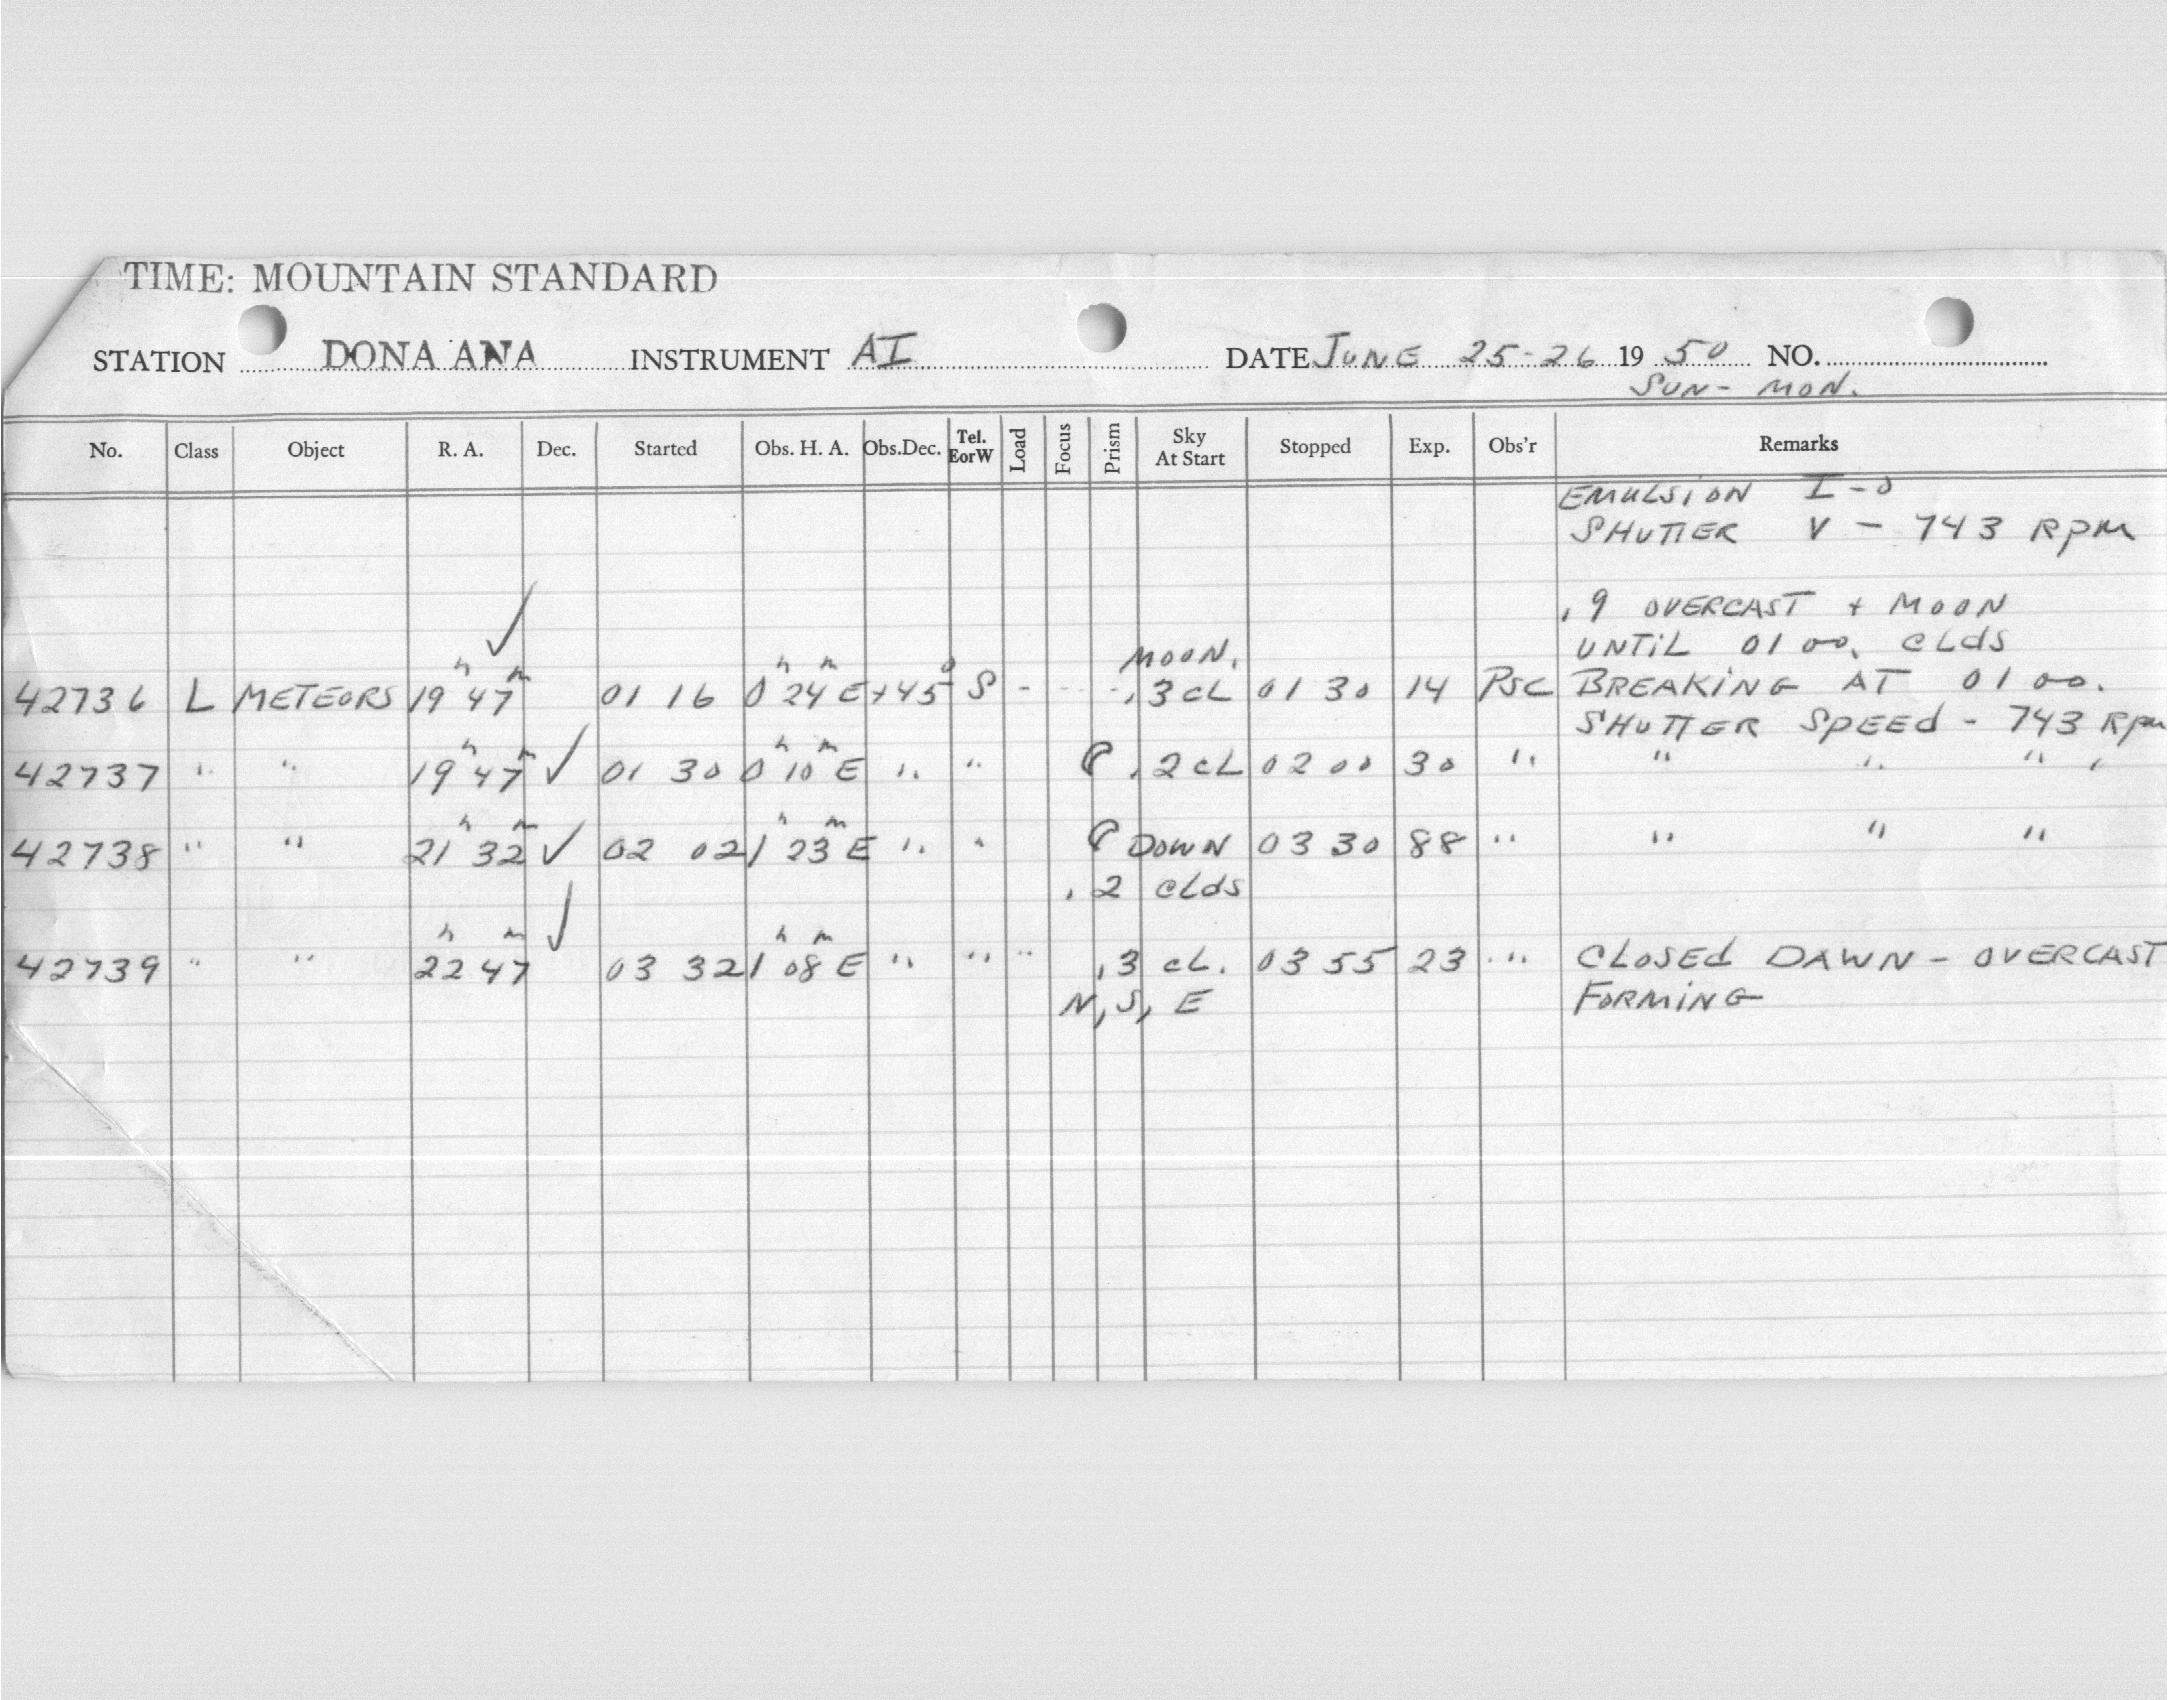 TIME: MOUNTAIN STANDARD
STATION DONA ANA INSTRUMENT AI DATE JUNE 25-26 19 50 NO.
SUN- MON.
No. Class Object R. A. Dec. Started Obs. H. A. Obs.Dec. Tel. EorW Load Focus Prism Sky At Start Stopped Exp. Obs'r Remarks
EMULSION I-O
SHUTTER V - 743 RPM
.9 OVERCAST + MOON
UNTIL 01 00. CLdS
MOON.
42736 L METEORS 19h 47m ✓ 01 16 0h 24m E +45° S - - - - .3 CL 01 30 14 PSC BREAKING AT 01 00.
SHUTTER SPEEd - 743 RPM
42737 " " 19h 47m ✓ 01 30 0h 10m E " " .2 CL 02 00 30 " " " " "
42738 " " 21h 32m ✓ 02 02 1h 23m E " " DOWN 03 30 88 " " " "
.2 CLdS
42739 " " 22h 47m ✓ 03 32 1h 08m E " " " .3 CL. 03 55 23 " CLOSEd DAWN - OVERCAST
N, S, E FORMING